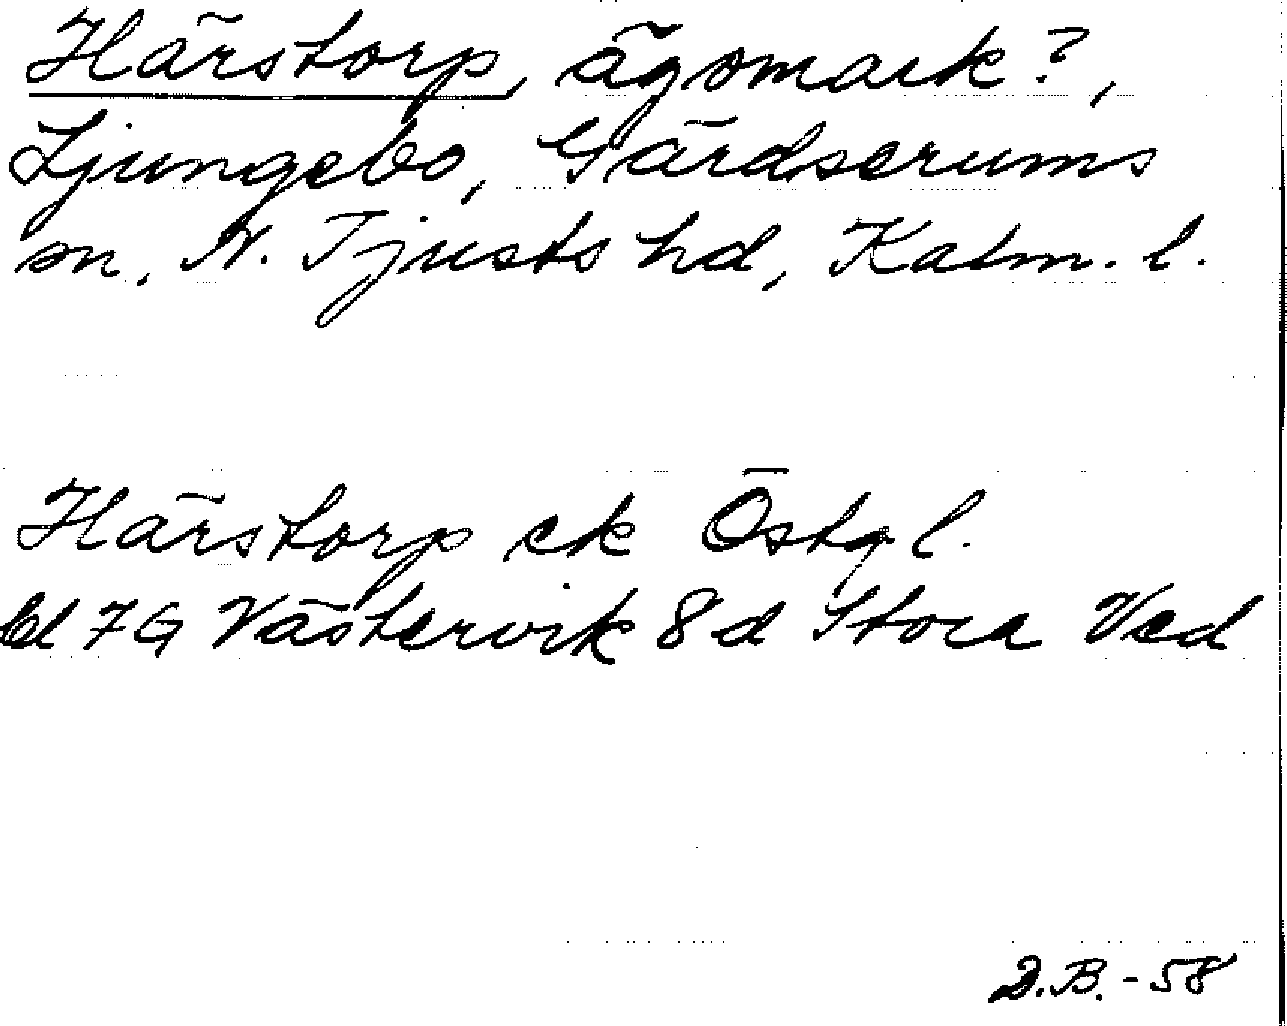 Härstorp, ägomark?,
Ljungebo, Gärdserums
sn, N. Tjusts hd, Kalm. l.
Härstorp ek Östg l.
bl 7G Västervik 8d Stora Ved
D.B. - 58